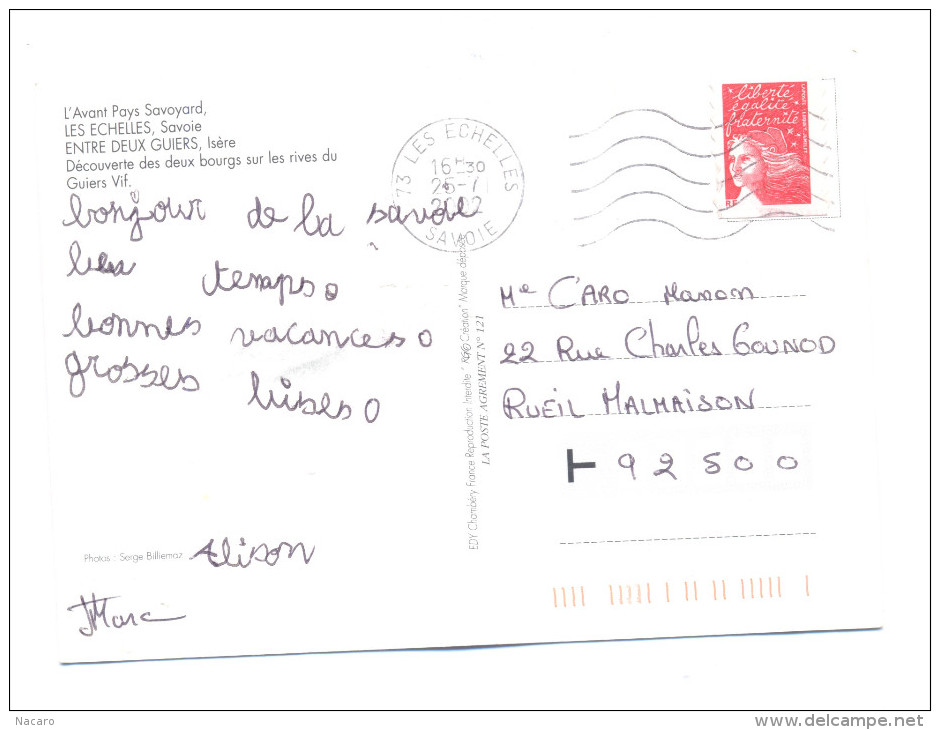 L'Avant Pays Savoyard,
LES ECHELLES, Savoie
ENTRE DEUX GUIERS, Isère
Découverte des deux bourgs sur les rives du
Guiers Vif.
bonjour de la savoie
temps
bonnes vacances
grosses bises
Photos : Serge Billiemaz
Alison
JMarc
73 LES ECHELLES
16H30
25-7
2002
SAVOIE
liberté
égalité
fraternité
RF
EDY Chambéry France Reproduction Interdite " Création" Marque déposée
LA POSTE AGREMENT N° 121
Me CARO Manon
22 Rue Charles GOUNOD
RUEIL MALMAISON
T 92500
Nacaro
www.delcampe.net